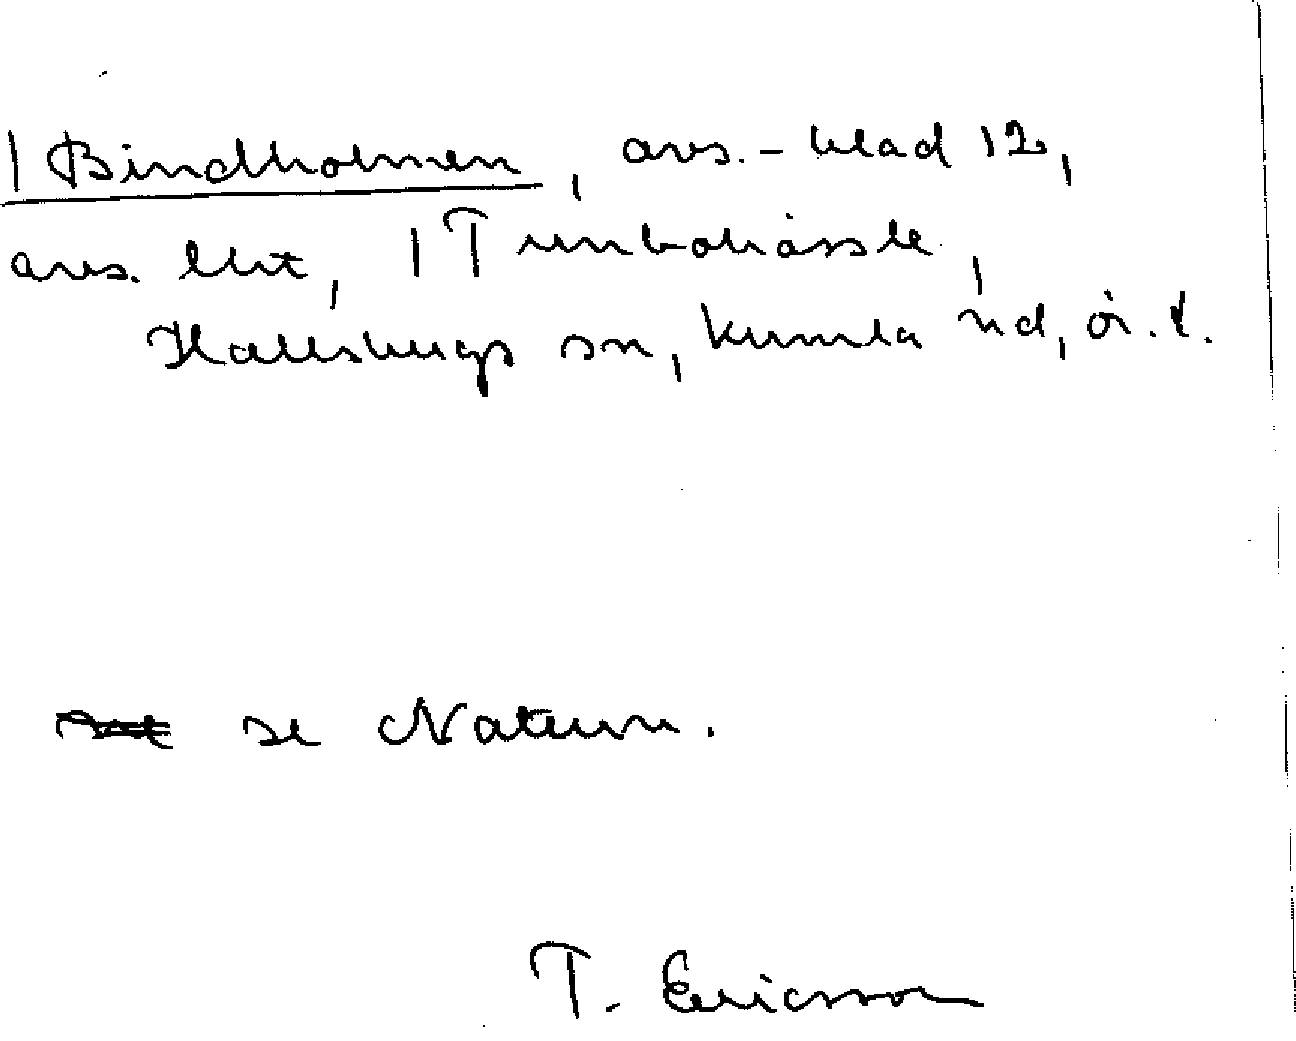 | Bindholmen, avs.-blad 12,
avs. lht, | Tunbohässle,
Hallsbergs sn, Kumla hd, ör. l.
se Naturn.
T. Ericsson